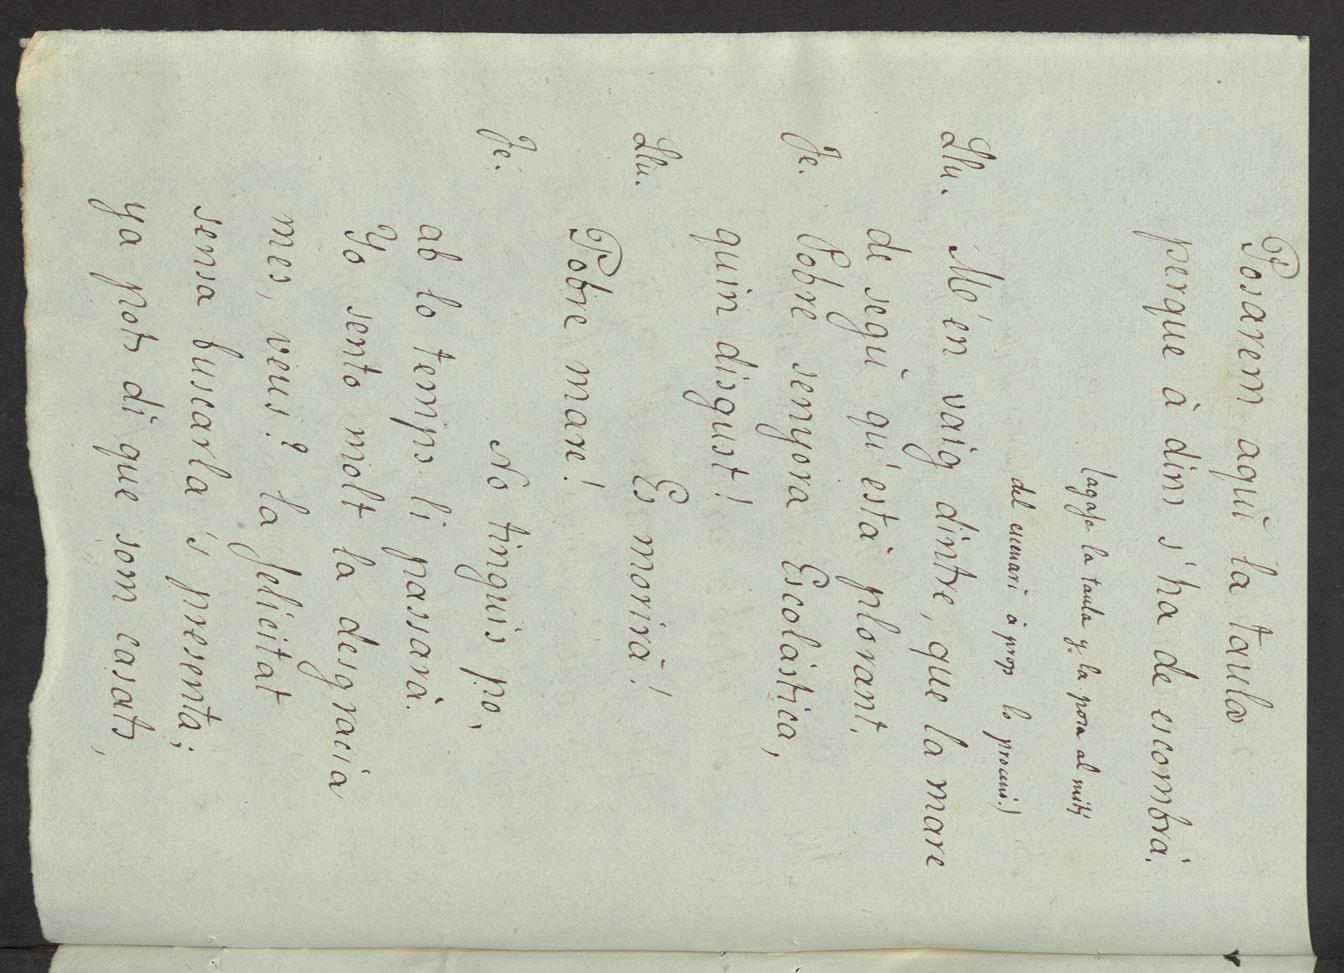 Posarem aquì la taula
perque à dins s'ha de escombrà.
(agafa la taula y la posa al mitj
del escenari à prop lo prosceni.)
Llu. M'en vaig dintre, que la mare
de segù qu'està plorant.
Je. Pobre senyora Escolàstica,
quin disgust!
Llu. Es morirà!
Pobre mare!
Je. No tinguis po,
ab lo temps li passarà.
Yo sento molt la desgracia
mes, veus? la felicitat
sensa buscarla 's presenta;
ya pots dì que som casats,